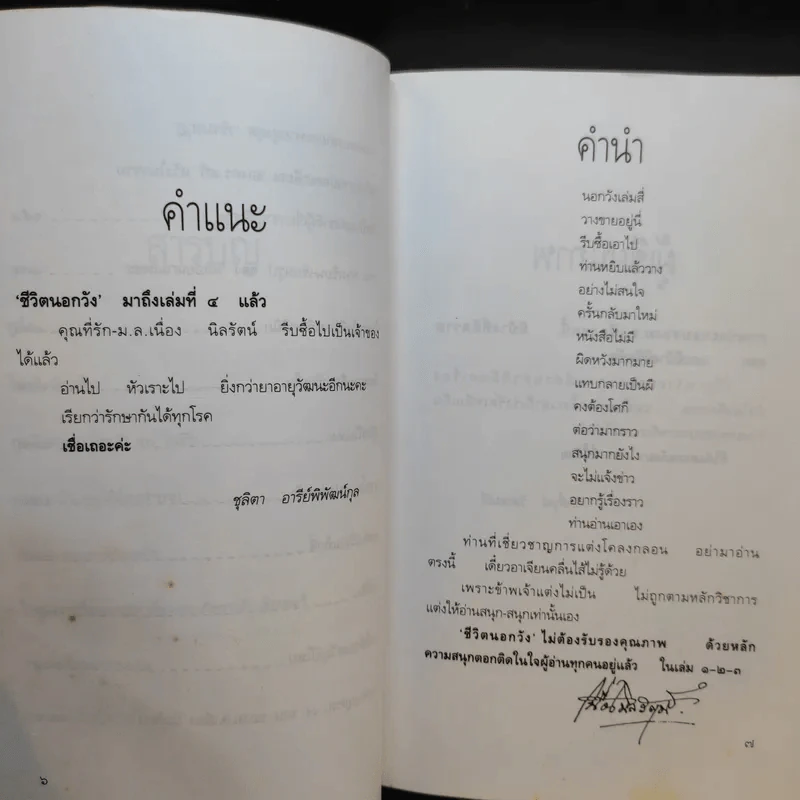 คำแนะ
'ชีวิตนอกวัง' มาถึงเล่มที่ ๔ แล้ว
คุณที่รัก-ม.ล.เนื่อง นิลรัตน์ รีบซื้อไปเป็นเจ้าของ
ได้แล้ว
อ่านไป หัวเราะไป ยิ่งกว่ายาอายุวัฒนะอีกนะคะ
เรียกว่ารักษากันได้ทุกโรค
เชื่อเถอะค่ะ
ชุลิตา อารีย์พิพัฒน์กุล
๖
คำนำ
นอกวังเล่มสี่
วางขายอยู่นี่
รีบซื้อเอาไป
ท่านหยิบแล้ววาง
อย่างไม่สนใจ
ครั้นกลับมาใหม่
หนังสือไม่มี
ผิดหวังมากมาย
แทบกลายเป็นผี
คงต้องโศกี
ต่อว่ามากราว
สนุกมากยังไง
จะไม่แจ้งข่าว
อยากรู้เรื่องราว
ท่านอ่านเอาเอง
ท่านที่เชี่ยวชาญการแต่งโคลงกลอน อย่ามาอ่าน
ตรงนี้ เดี๋ยวอาเจียนคลื่นไส้ไม่รู้ด้วย
เพราะข้าพเจ้าแต่งไม่เป็น ไม่ถูกตามหลักวิชาการ
แต่งให้อ่านสนุก-สนุกเท่านั้นเอง
'ชีวิตนอกวัง' ไม่ต้องรับรองคุณภาพ ด้วยหลัก
ความสนุกตอกติดในใจผู้อ่านทุกคนอยู่แล้ว ในเล่ม ๑-๒-๓
๗